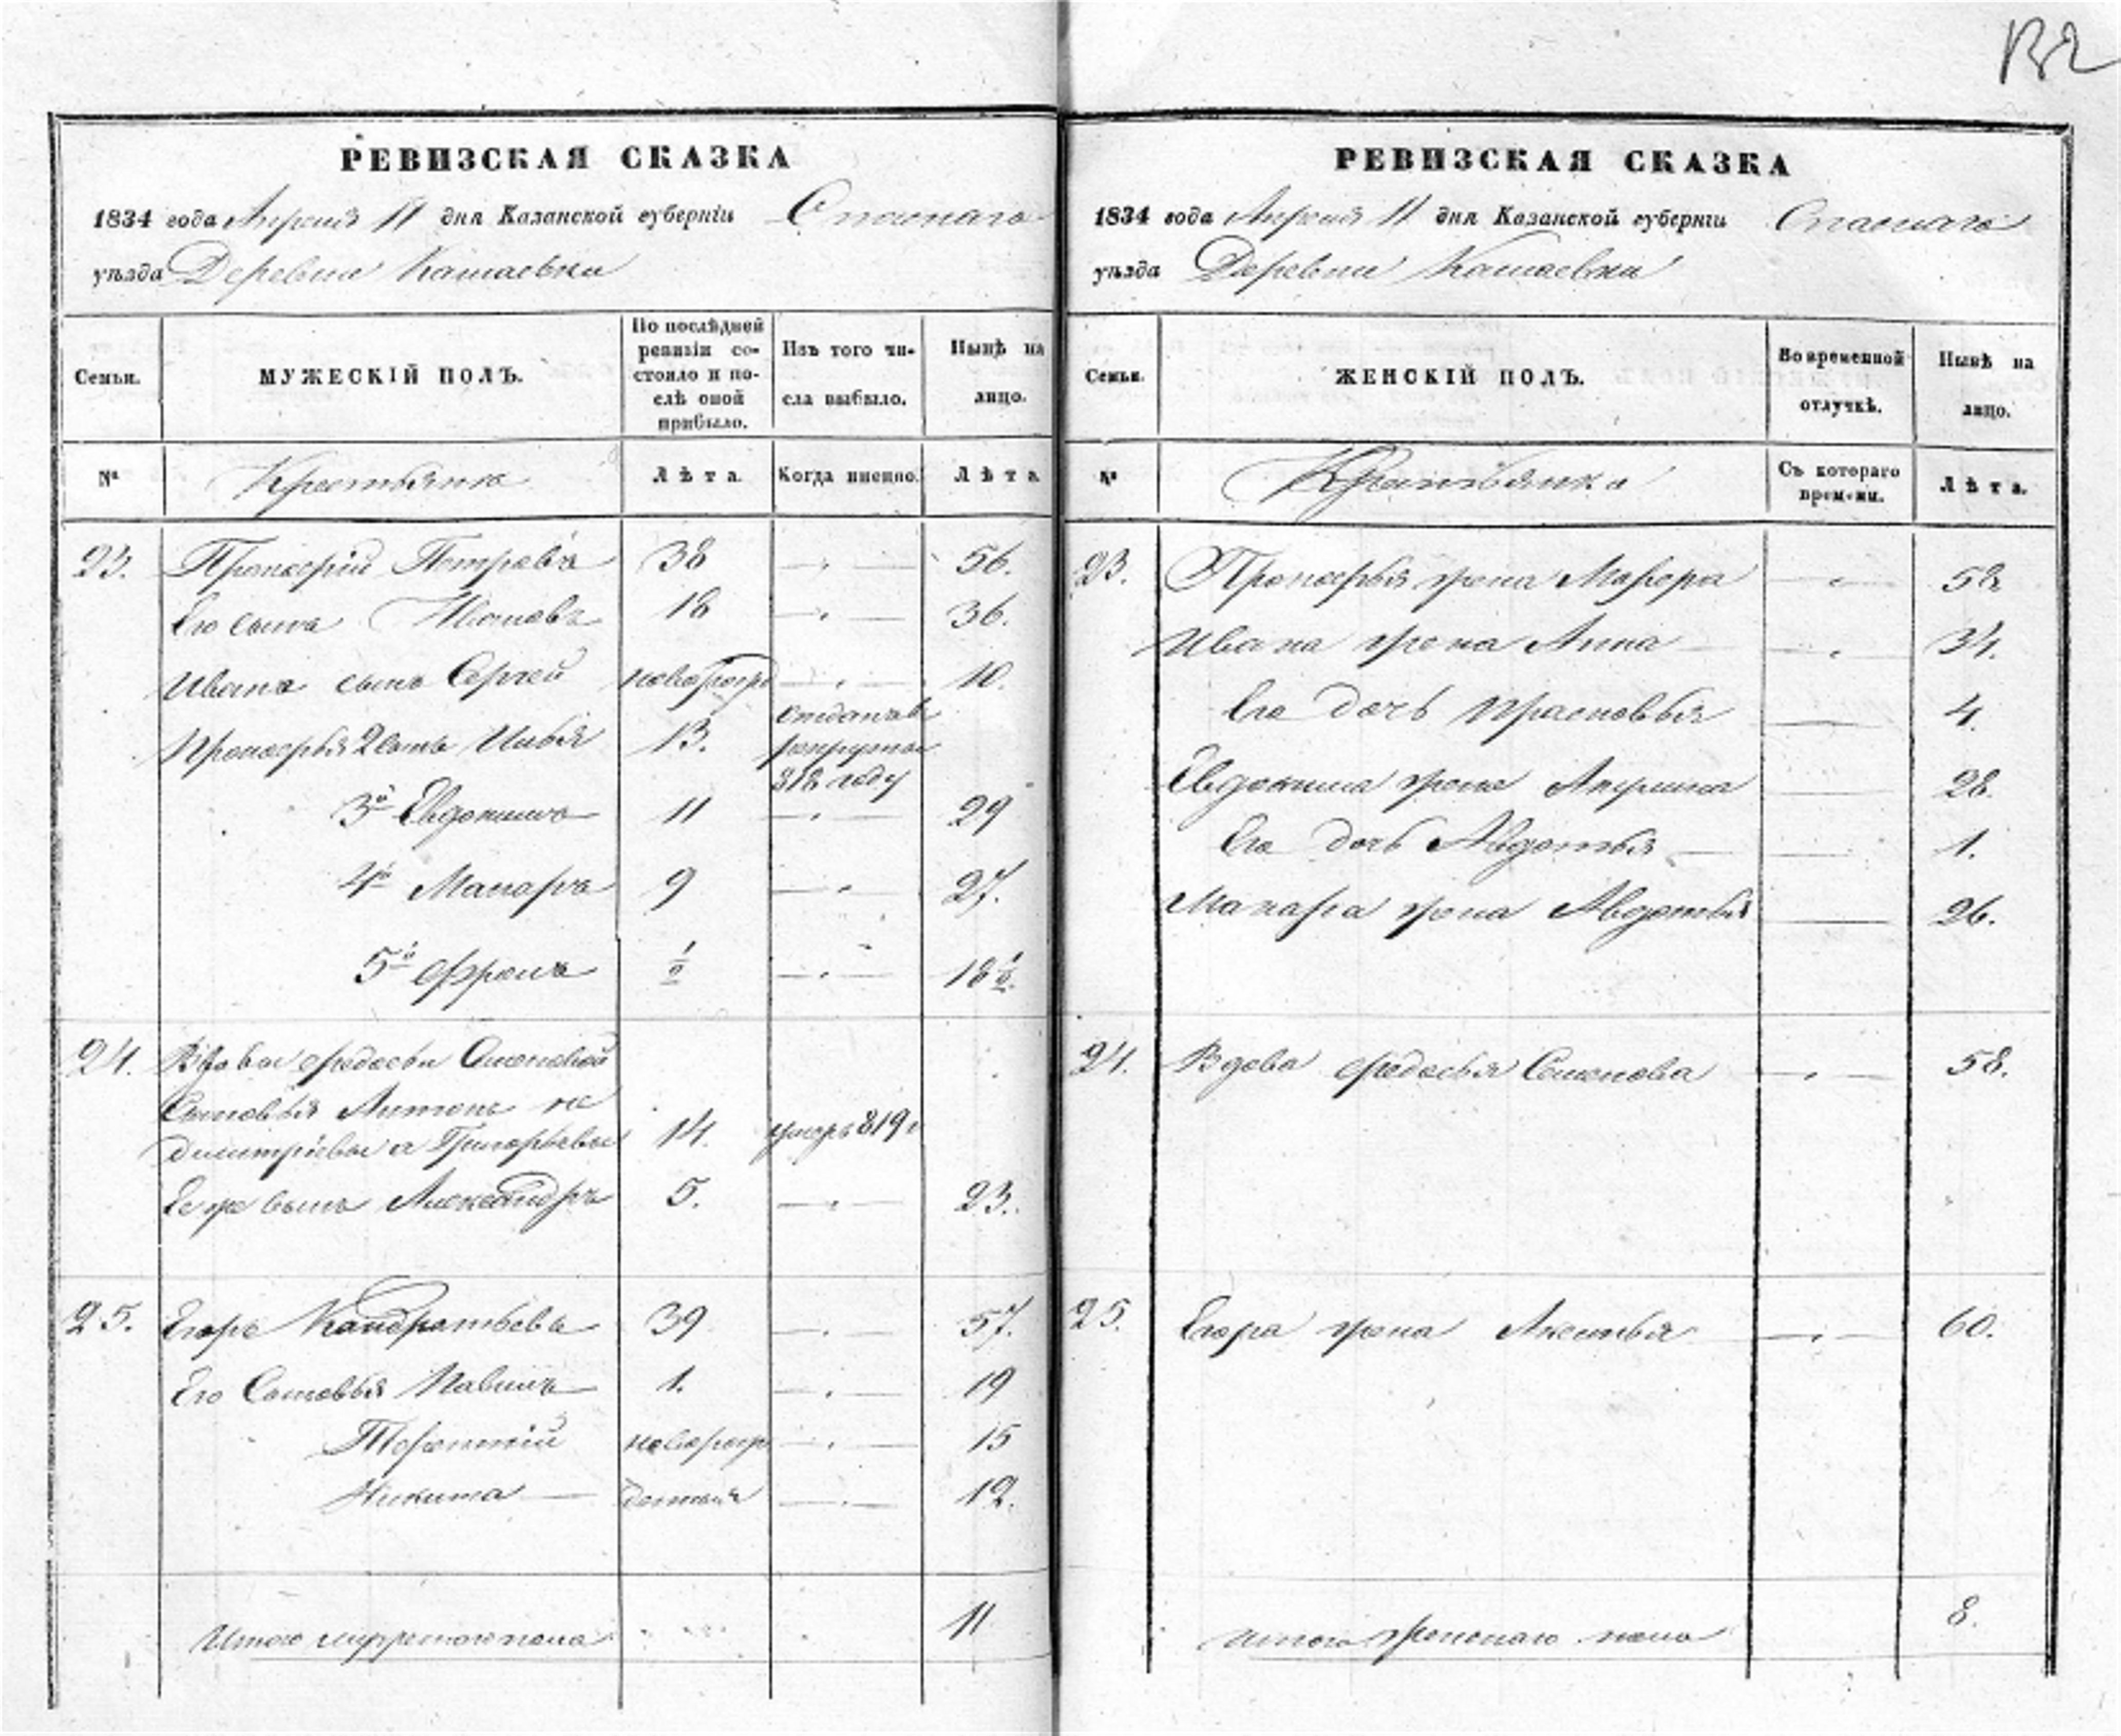 132
РЕВИЗСКАЯ СКАЗКА
1834 года Апреля 11 дня Казанской губернiи Спаскаго
уѣзда Деревни Кашаевки
Семьи.
МУЖЕСКIЙ ПОЛЪ.
По послѣдней ревизiи состояло и послѣ оной прибыло.
Изъ того числа выбыло.
Нынѣ на лицо.
№
Крестьянъ
Лѣта.
Когда именно.
Лѣта.
23. Прокофiй Петровъ 38 — 56.
Его сынъ Ивановъ 18 — 36.
Ивана сынъ Сергей новорожд — 10.
Прокофья 2 сынъ Илья 13. отданъ в рекруты 818 году
3й Евдокимъ 11 — 29
4й Макаръ 9 — 27.
5й Фролъ ½ — 18½.
24. Вдовы Федосьи Семеновой
Сыновья Антонъ
Дмитрiевы а Григорьевы 14. умеръ 819
Ее же сынъ Александръ 5. — 23.
25. Егоръ Кандратьевъ 39 — 57.
Его Сыновья Павилъ 1. — 19
новорожд — 15
Никита — — 12.
Итого мужескаго пола 11
РЕВИЗСКАЯ СКАЗКА
1834 года Апреля 11 дня Казанской губернiи Спаскаго
уѣзда Деревни Кашаевки
Семьи.
ЖЕНСКIЙ ПОЛЪ.
Во временной отлучкѣ.
Нынѣ на лицо.
№
Крестьянка
Съ котораго времени.
Лѣта.
23. Прокофья жена — 58
Ивана жена Анна — 34.
Его дочь Прасковья — 4.
Евдокима жена Акулина 28.
Его дочь Авдотья — 1.
Макара жена Авдотья — 26.
24. Вдова Федосья Семенова — 58.
25. Егора жена Аксинья — 60.
Итого женскаго пола 8.